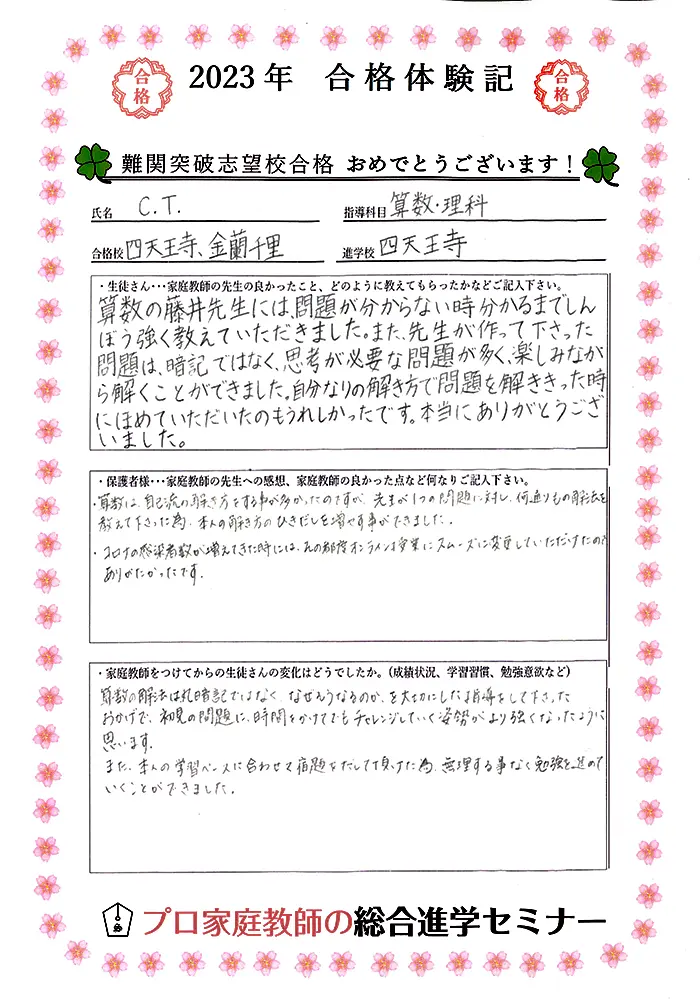 合格
2023年 合格体験記
合格
難関突破志望校合格 おめでとうございます！
氏名 C.T.
指導科目 算数・理科
合格校 四天王寺、金蘭千里
進学校 四天王寺
・生徒さん･･･家庭教師の先生の良かったこと、どのように教えてもらったかなどご記入下さい。
算数の藤井先生には、問題が分からない時分かるまでしん
ぼう強く教えていただきました。また、先生が作って下さった
問題は、暗記ではなく、思考が必要な問題が多く、楽しみなが
ら解くことができました。自分なりの解き方で問題を解ききった時
にほめていただいたのもうれしかったです。本当にありがとうござ
いました。
・保護者様･･･家庭教師の先生への感想、家庭教師の良かった点など何なりご記入下さい。
・算数は、自己流の解き方をする事が多かったのですが、先生が1つの問題に対し、何通りもの解法を
教えて下さった為、本人の解き方のひきだしを増やす事ができました。
・コロナの感染者数が増えてきた時には、その都度オンライン授業にスムーズに変更していただけたので
ありがたかったです。
・家庭教師をつけてからの生徒さんの変化はどうでしたか。（成績状況、学習習慣、勉強意欲など）
算数の解法は丸暗記ではなく、なぜそうなるのか、を大切にした指導をして下さった
おかげで、初見の問題に、時間をかけてでもチャレンジしていく姿勢がより強くなったように
思います。
また、本人の学習ペースに合わせて宿題をだして頂けた為、無理する事なく勉強を進めて
いくことができました。
プロ家庭教師の総合進学セミナー